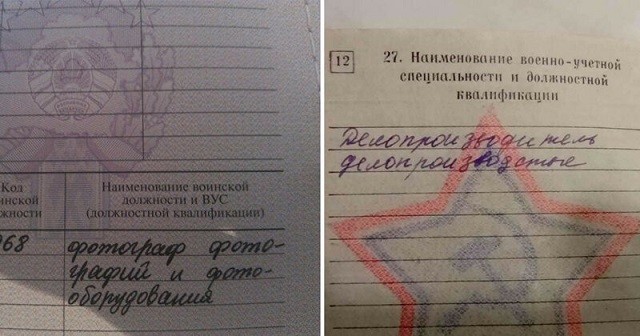 Код
инской
жности
Наименование воинской
должности и ВУС
(должностной квалификации)
968
фотограф фото-
графий и фото-
оборудования
12
27. Наименование военно-учетной
специальности и должностной
квалификации
Делопроизводитель
делопроизводстве